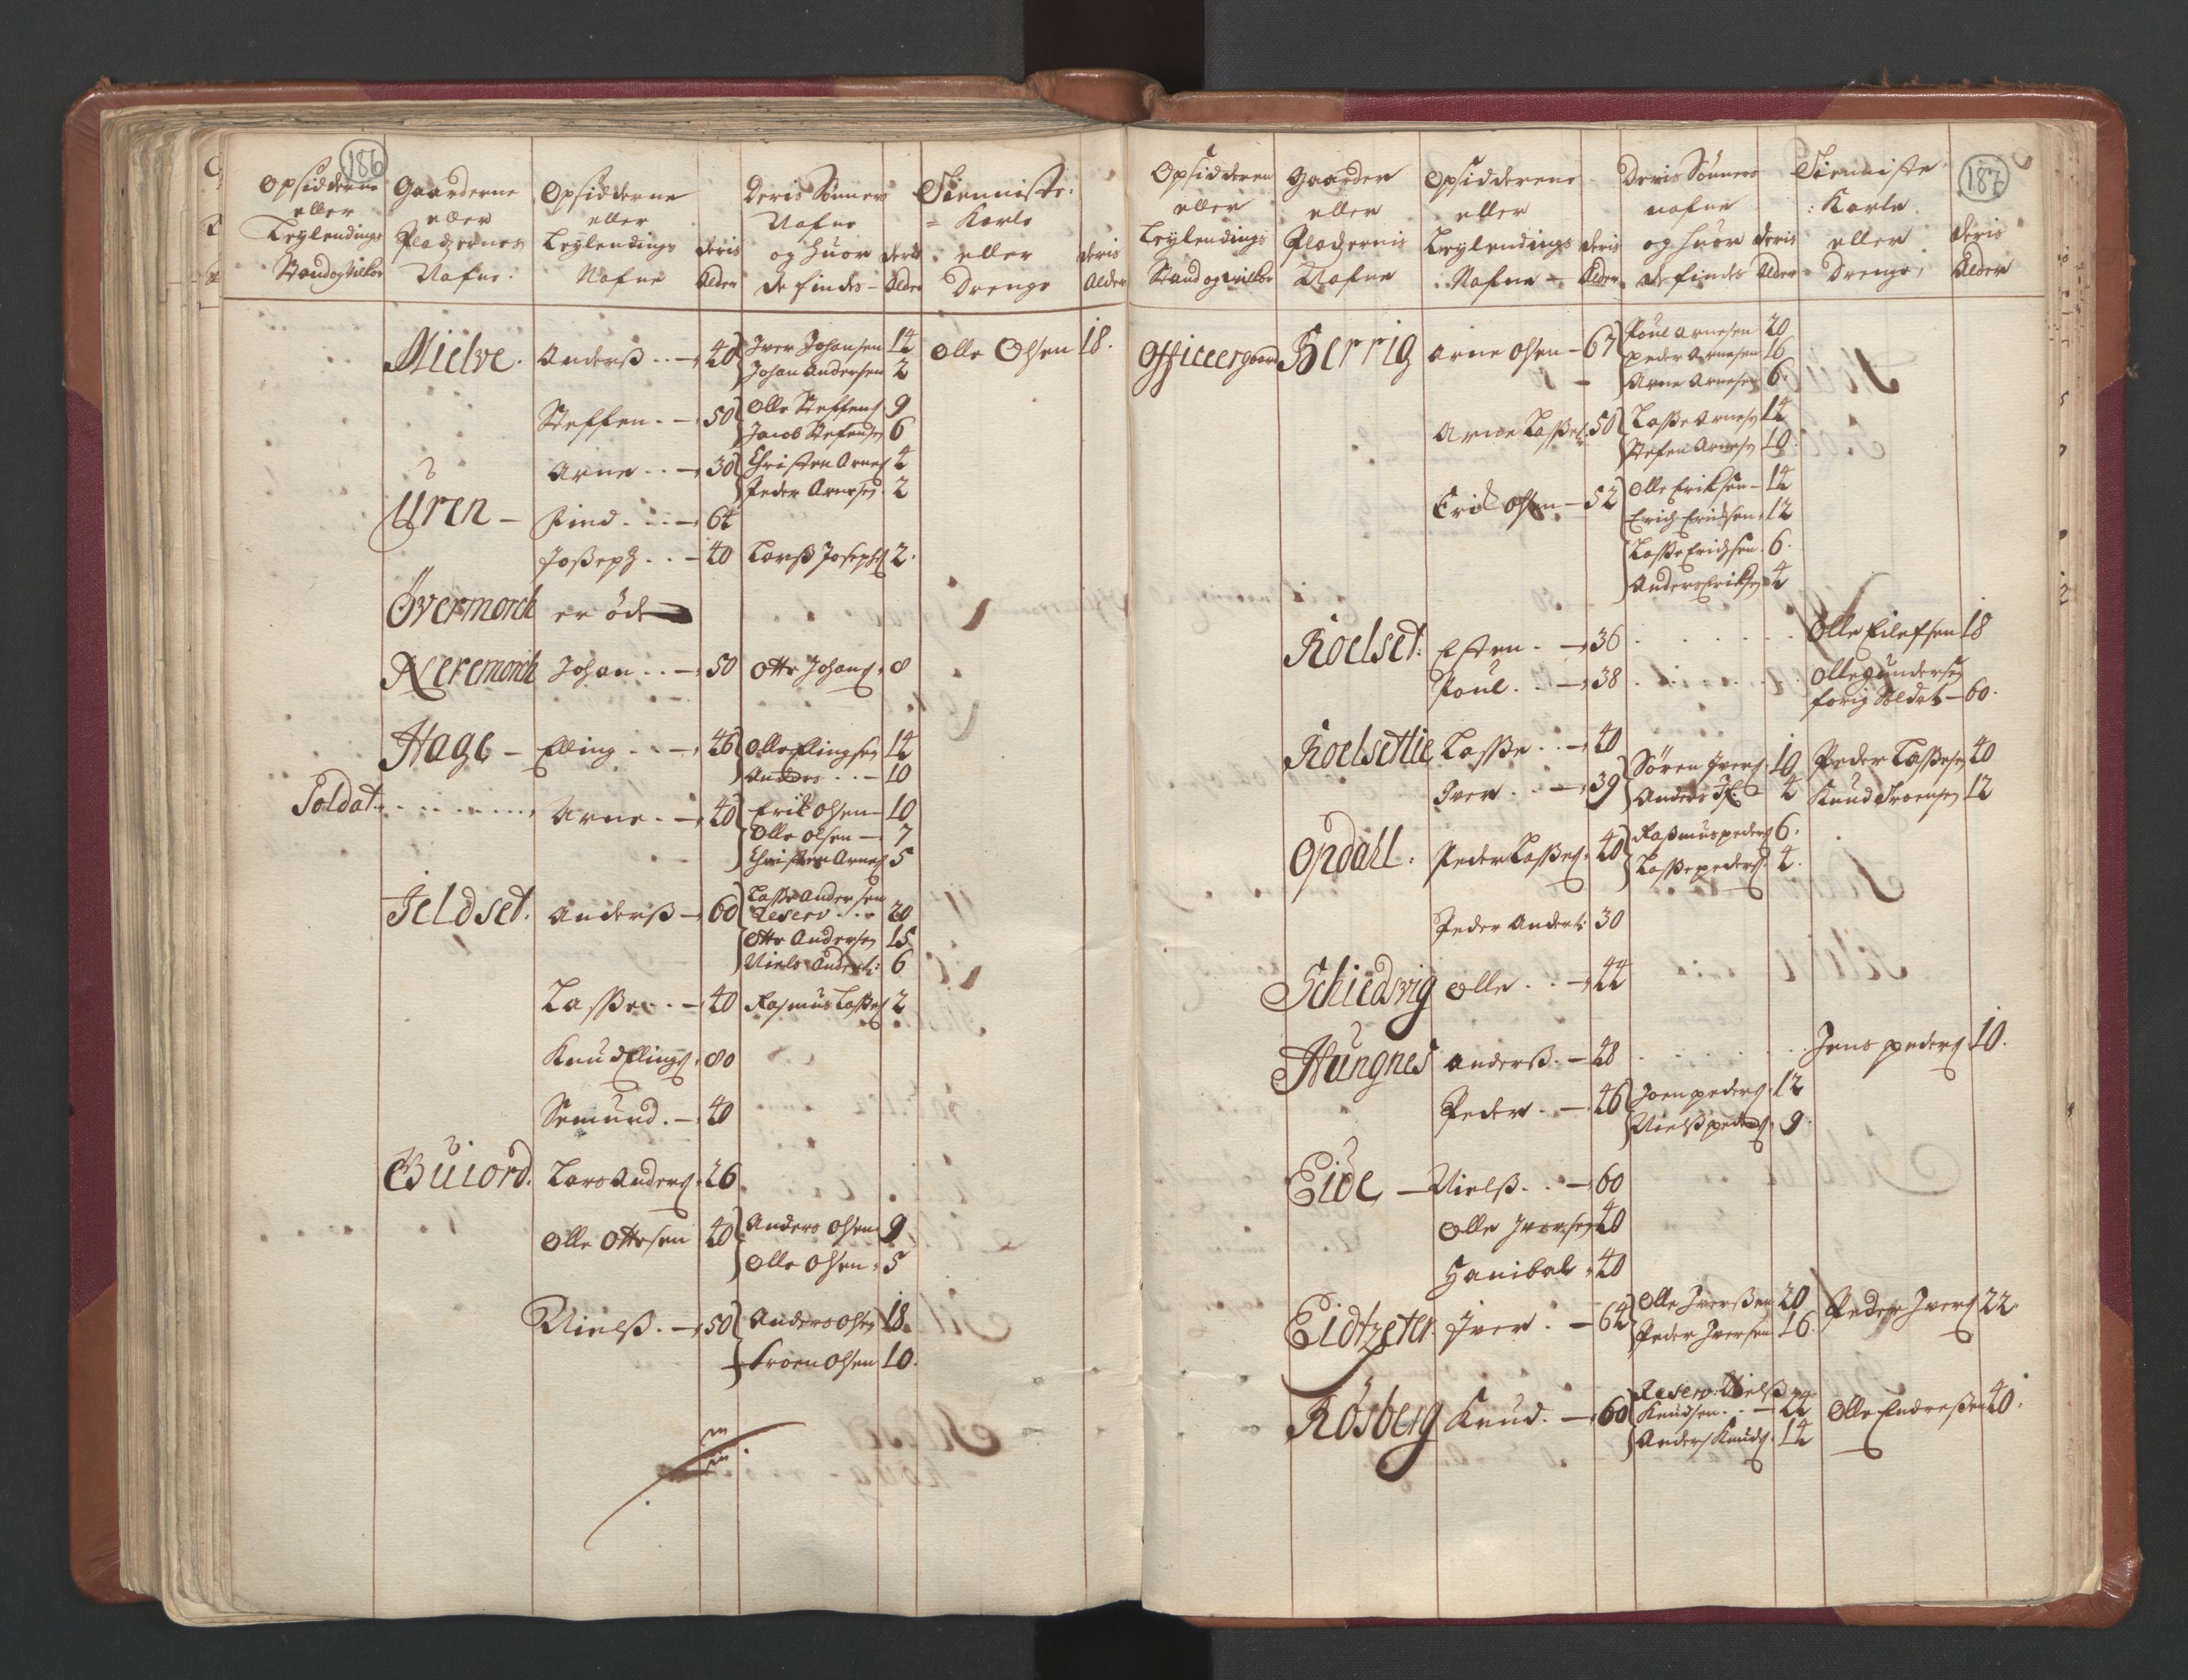 186
Opsidderne eller Leylendings Stand og Vilkor
Gaarderne eller Pladzernes Nafne.
Opsidderne eller Leylendings Nafne
deris Alder
Deris Sønner Nafne og huor de findes -
deris Alder
Tienniste: = Karle eller Drenge
deris Alder
Mielve. Anderß . . - 40 Iver Johansen 14 Olle Olsen 18.
Johan Andersen 2
Steffen . - 50 Olle Steffens 9
Jacob Stefensen 6
Arne . . - 30 Christen Arnes 4
Peder Arnesen . 2
Uren - Find . . . - 64
Joßeph . . - 40 Larß Josephs 2.
Övermorch er öde
Neremorch Johan . . - 50 Otte Johans . 8
Hage - Elling . . - 46 Olle Ellingsen 14
Anders . . - 10
Soldat . . . . . . . Arne . - 40 Erik Olsen - 10
Olle Olsen - 7
Christen Arnes 5
Jeldset. Anderß - 60 Laße Andersen
Reserv . . - 20
Otte Andersen 15
Niels Anders: 6
Laße . . - 40 Rasmus Laßes 2
Knud Ellings . 80
Semund . - 40
Buiord. Lars Anders . 26
Olle Ottesen 40 Anders Olsen 9
Olle Olsen . 5
Nielß . - 50 Anders Olsen 18.
Troen Olsen 10.
187
Opsidderen eller Leylendings Stand og vilkor
Gaarder eller Pladzernis Nafne
Opsidderene eller Leylendings Nafne -
deris Alder
Deris Sønners nafne og huor de findes
deris Alder
Tienniste : Karle eller Drenge,
deris Alder
Officeergaard Herrig Arne Olsen - 67 Poul Arnesen 20
peder Arnesen 16
Arne Arnesen 6.
Arne Laßes 50 Laße Arnesen 14
Stefen Arnesen 10.
Erik Olsen - 52 Olle Eriksen - 14
Erich Erichsen . 12
Laße Erichsen . 6.
Anders Eriksen 4
Roelset. Esten . - 36 . . . . . Olle Eilefsen 18
Poul . . - 38 . . . . . Olle Gundersen
forig Soldat - 60.
Roelsetlie Laße . . - 40
Iver . . - 39 Sören Ivers . 10 Peder Laßesen 40
Anders Is. 4 Knud Troensen 12
Opdahl. Peder Laßes . 40 Raßmus peders 6.
Laße peders . 4.
Peder Anders: 30
Schiedsvig Olle . . - 44
Hungnes Anderß . - 48 . . . . . Jens peders 10.
Peder . - 46 Joen peders . 12
Nielß peders . 9.
Eide - Nielß . . - 60
Olle Iversen 40
Hanibal . 40
Eidtzeter. Iver . - 64 Olle Iverßen 20 Peder Ivers 22.
Peder Iversen 16.
Rösberg Knud . - 60 Reserv: Nielß
Knudsen . . - 24 Olle Endreßen 40.
Anders Knuds . 14